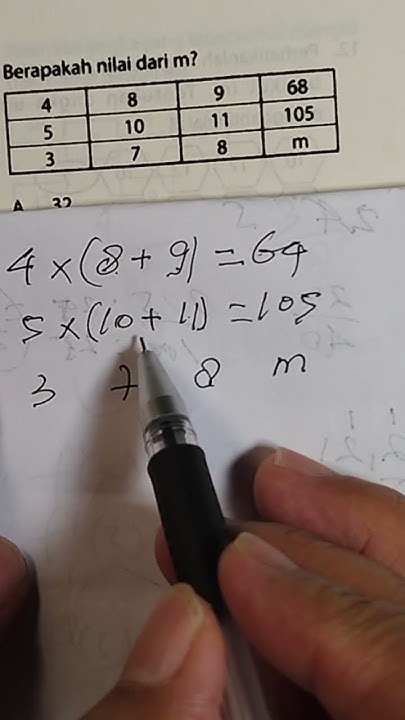 Berapakah nilai dari m?
4 8 9 68
5 10 11 105
3 7 8 m
A 32
4 × (8 + 9) = 64
5 × (10 + 11) = 105
3 7 8 m